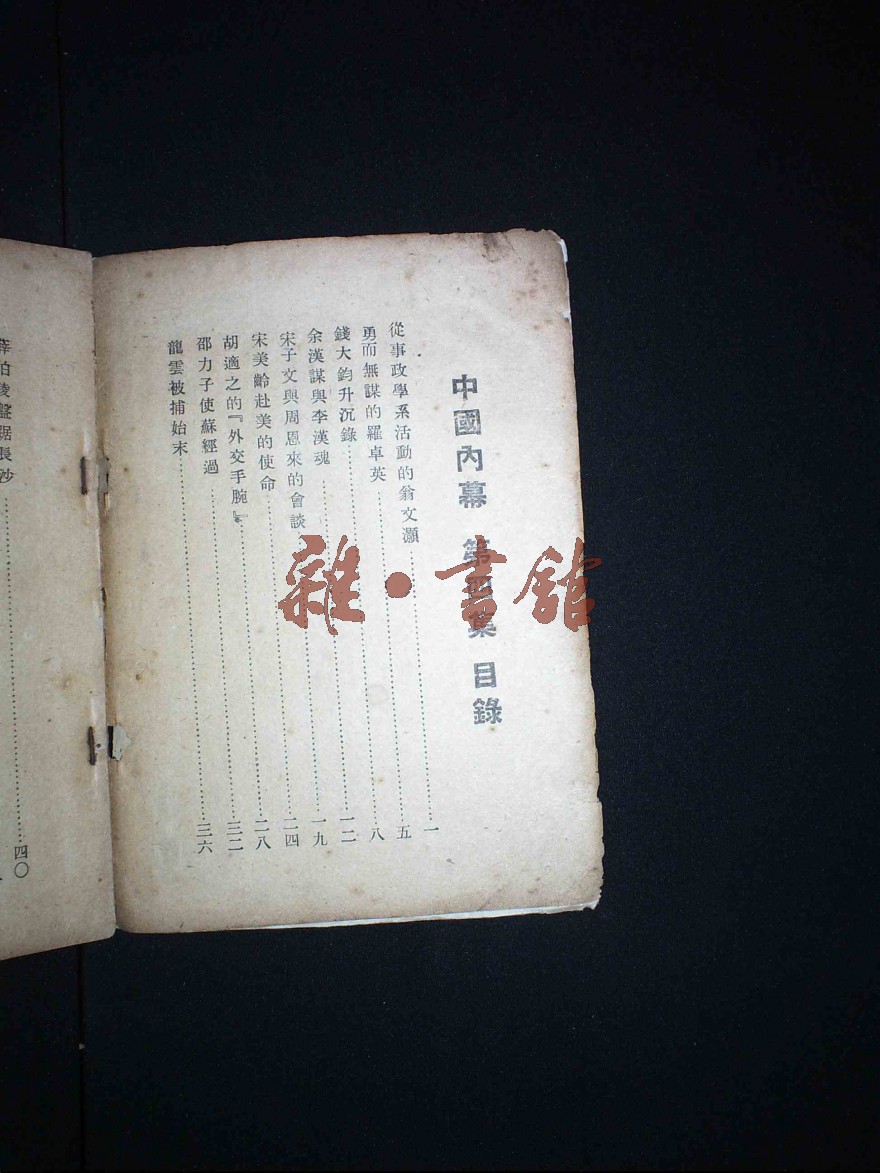 中國內幕 第四集 目錄
從事政學系活動的翁文灝…………一
勇而無謀的羅卓英…………五
錢大鈞升沉錄…………八
余漢謀與李漢魂…………一二
宋子文與周恩來的會談…………一九
宋美齡赴美的使命…………二四
胡適之的『外交手腕』…………二八
邵力子使蘇經過…………三二
龍雲被捕始末…………三六
薛伯陵盤踞長沙…………四〇
雜·書館